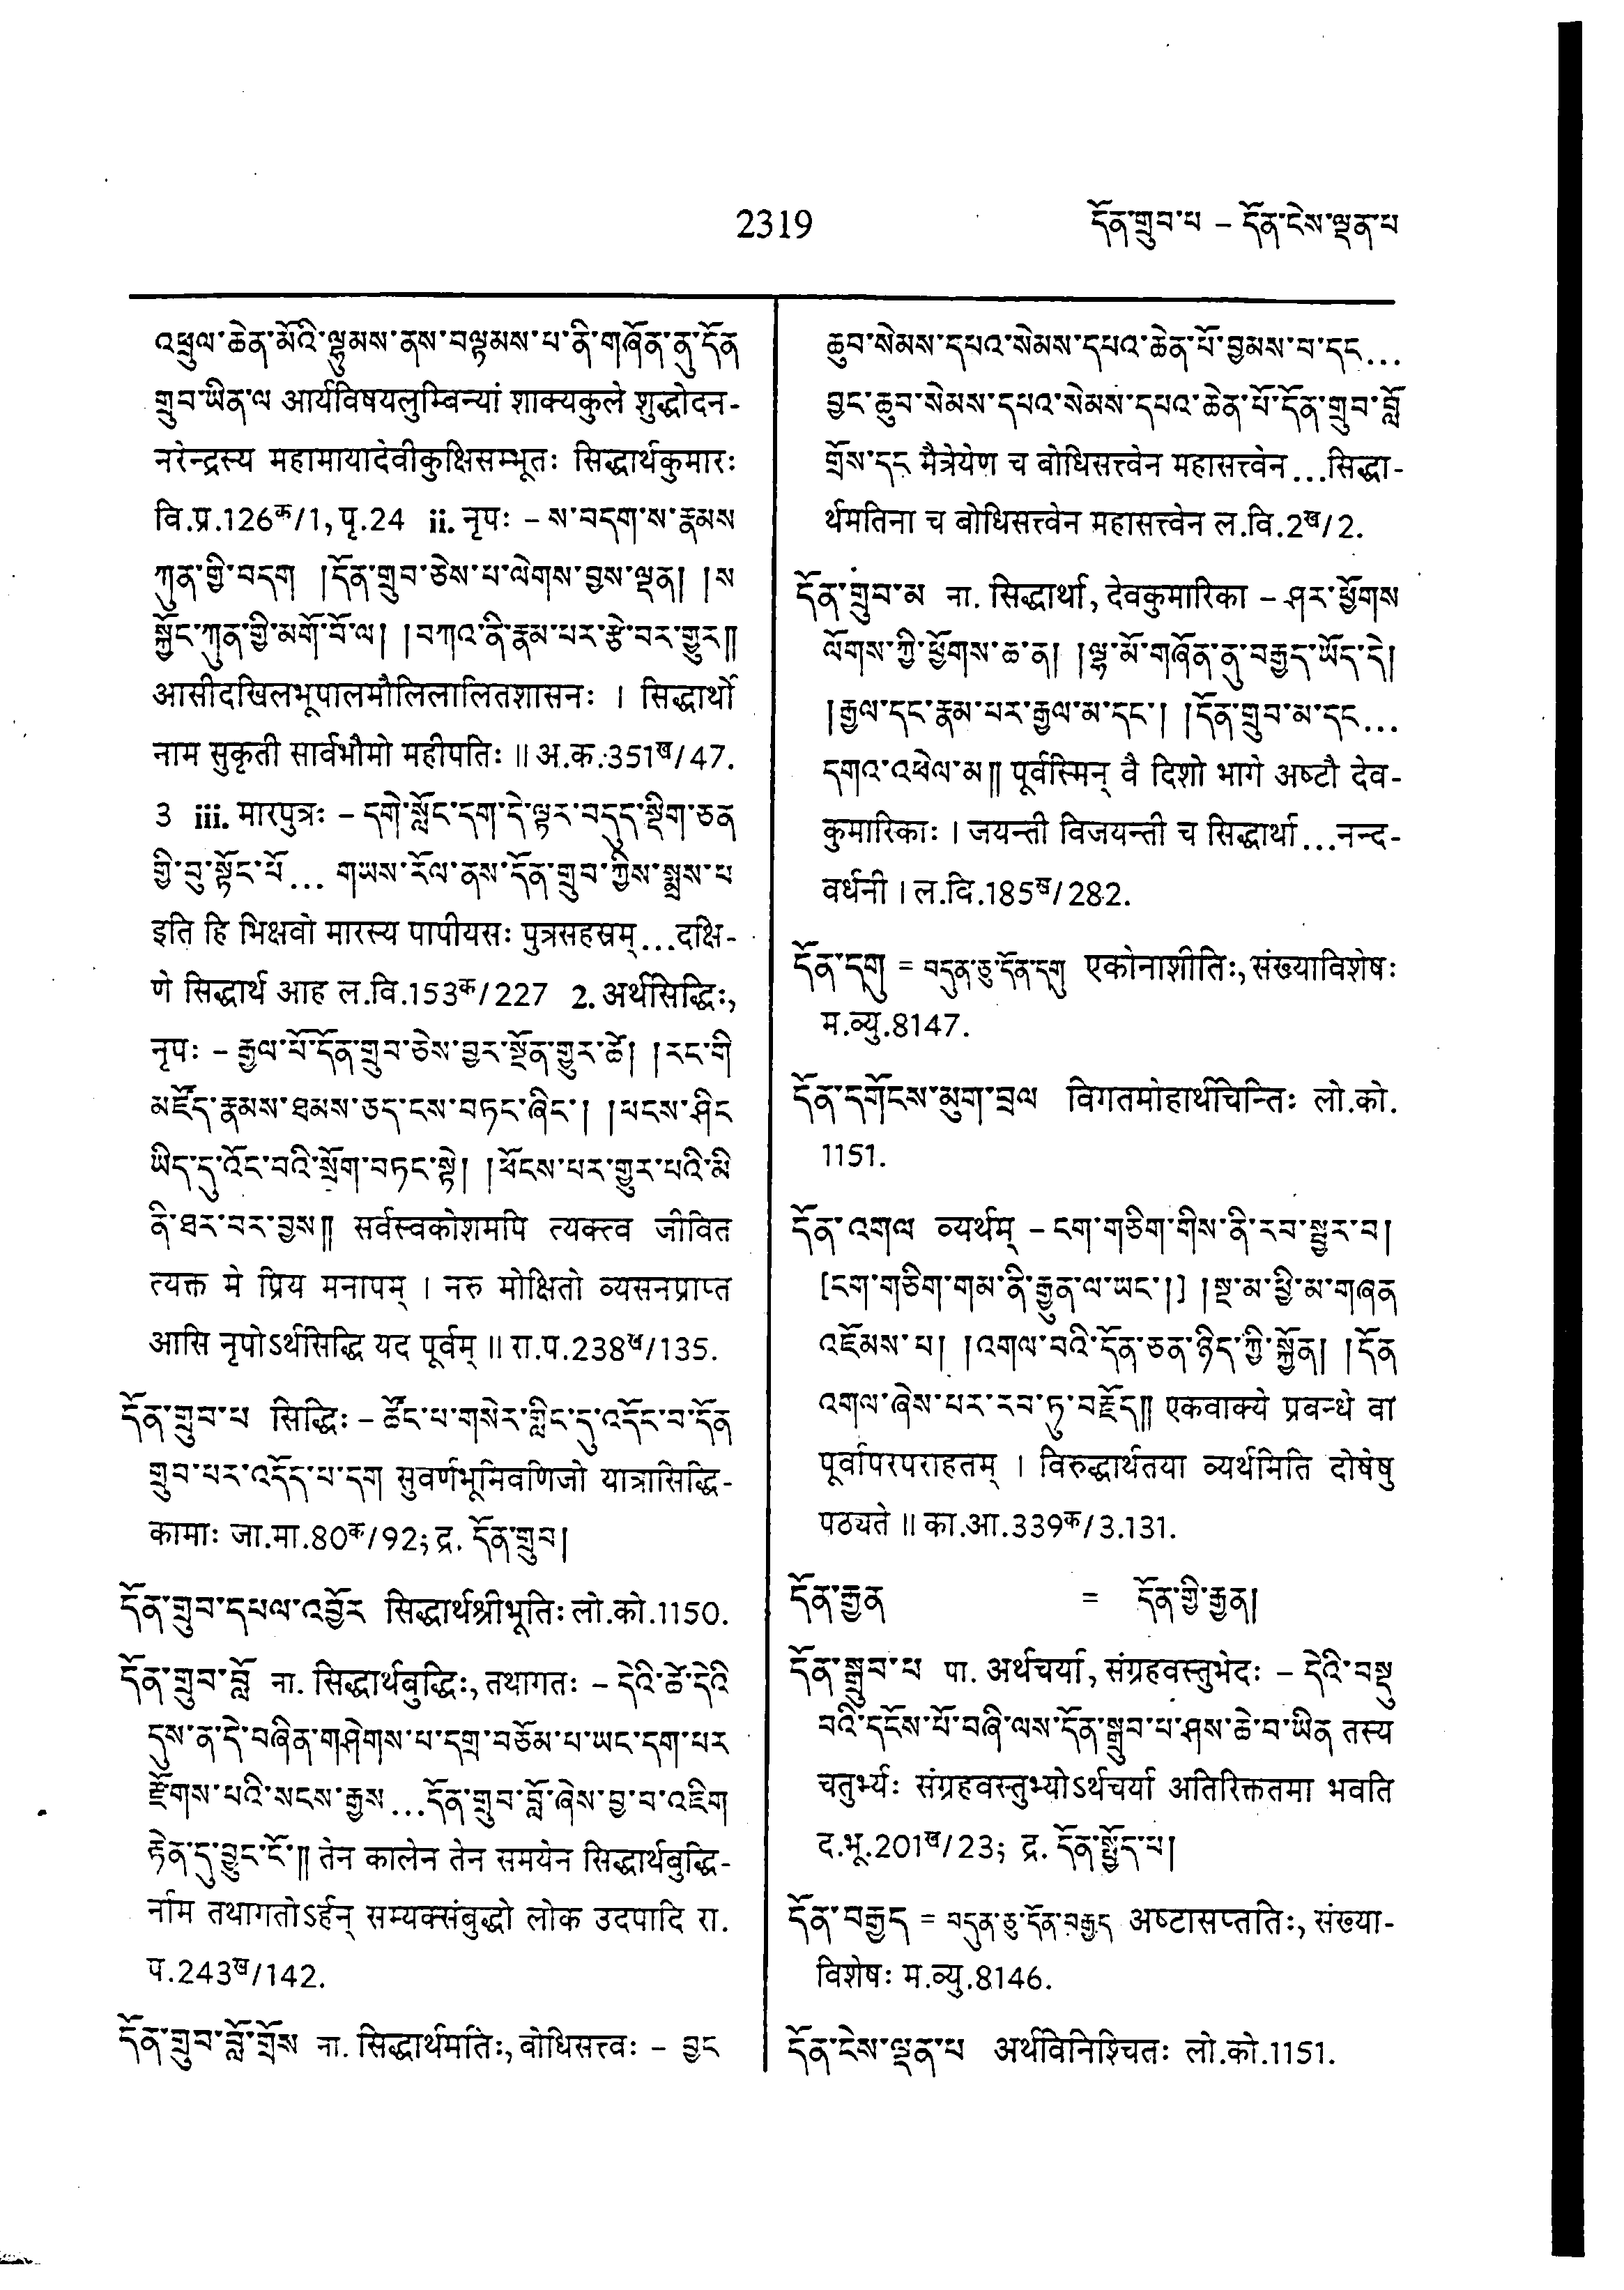 2319
དོན་གྲུབ་པ – དོན་ངེས་ལྡན་པ
འཕྲུལ་ཆེན་མོའི་ལྷུམས་ནས་བལྟམས་པ་ནི་གཞོན་ནུ་དོན
གྲུབ་ཡིན་ལ आर्यविषयलुम्बिन्यां शाक्यकुले शुद्धोदन-
नरेन्द्रस्य महामायादेवीकुक्षिसम्भूतः सिद्धार्थकुमारः
वि.प्र.126क/1, पृ.24 ii. नृपः – ས་བདག་ས་རྣམས
ཀུན་གྱི་བདག །དོན་གྲུབ་ཅེས་པ་ལེགས་བྱས་ལྡན། །ས
སྐྱོང་ཀུན་གྱི་མགོ་བོ་ལ། །བཀའ་ནི་རྣམ་པར་རྩེ་བར་གྱུར༎
आसीदखिलभूपालमौलिलालितशासनः । सिद्धार्थो
नाम सुकृती सार्वभौमो महीपतिः ॥ अ.क.351ख/47.
3 iii. मारपुत्रः – དགེ་སློང་དག་དེ་ལྟར་བདུད་སྡིག་ཅན
གྱི་བུ་སྟོང་པོ... གཡས་རོལ་ནས་དོན་གྲུབ་ཀྱིས་སྨྲས་པ
इति हि भिक्षवो मारस्य पापीयसः पुत्रसहस्रम्...दक्षि-
णे सिद्धार्थ आह ल.वि.153क/227 2. अर्थसिद्धिः,
नृपः – རྒྱལ་པོ་དོན་གྲུབ་ཅེས་བྱར་སྔོན་གྱུར་ཚེ། །རང་གི
མཛོད་རྣམས་ཐམས་ཅད་ངས་བཏང་ཞིང་། །ཕངས་ཤིང
ཡིད་དུ་འོང་བའི་སྲོག་བཏང་སྟེ། །ཕོངས་པར་གྱུར་པའི་མི
ནི་ཐར་བར་བྱས༎ सर्वस्वकोशमपि त्यक्त्व जीवित
त्यक्त मे प्रिय मनापम् । नरु मोक्षितो व्यसनप्राप्त
आसि नृपोऽर्थसिद्धि यद पूर्वम् ॥ रा.प.238ख/135.
དོན་གྲུབ་པ सिद्धिः – ཚོང་པ་གསེར་གླིང་དུ་འདོང་བ་དོན
གྲུབ་པར་འདོད་པ་དག सुवर्णभूमिवणिजो यात्रासिद्धि-
कामाः जा.मा.80क/92; द्र. དོན་གྲུབ།
དོན་གྲུབ་དཔལ་འབྱོར सिद्धार्थश्रीभूतिः लो.को.1150.
དོན་གྲུབ་བློ ना. सिद्धार्थबुद्धिः, तथागतः – དེའི་ཚེ་དེའི
དུས་ན་དེ་བཞིན་གཤེགས་པ་དགྲ་བཅོམ་པ་ཡང་དག་པར
རྫོགས་པའི་སངས་རྒྱས...དོན་གྲུབ་བློ་ཞེས་བྱ་བ་འཇིག
རྟེན་དུ་བྱུང་ངོ་༎ तेन कालेन तेन समयेन सिद्धार्थबुद्धि-
र्नाम तथागतोऽर्हन् सम्यक्संबुद्धो लोक उदपादि रा.
प.243ख/142.
དོན་གྲུབ་བློ་གྲོས ना. सिद्धार्थमतिः, बोधिसत्त्वः – བྱང
ཆུབ་སེམས་དཔའ་སེམས་དཔའ་ཆེན་པོ་བྱམས་པ་དང...
བྱང་ཆུབ་སེམས་དཔའ་སེམས་དཔའ་ཆེན་པོ་དོན་གྲུབ་བློ
གྲོས་དང मैत्रेयेण च बोधिसत्त्वेन महासत्त्वेन...सिद्धा-
र्थमतिना च बोधिसत्त्वेन महासत्त्वेन ल.वि.2ख/2.
དོན་གྲུབ་མ ना. सिद्धार्था, देवकुमारिका – ཤར་ཕྱོགས
ལོགས་ཀྱི་ཕྱོགས་ཆ་ན། །ལྷ་མོ་གཞོན་ནུ་བརྒྱད་ཡོད་དེ།
།རྒྱལ་དང་རྣམ་པར་རྒྱལ་མ་དང་། །དོན་གྲུབ་མ་དང...
དགའ་འཕེལ་མ༎ पूर्वस्मिन् वै दिशो भागे अष्टौ देव-
कुमारिकाः । जयन्ती विजयन्ती च सिद्धार्था...नन्द-
वर्धनी । ल.वि.185ख/282.
དོན་དགུ = བདུན་ཅུ་དོན་དགུ एकोनाशीतिः, संख्याविशेषः
म.व्यु.8147.
དོན་དགོངས་མུག་བྲལ विगतमोहार्थचिन्तिः लो.को.
1151.
དོན་འགལ व्यर्थम् – ངག་གཅིག་གིས་ནི་རབ་སྦྱར་བ།
[ངག་གཅིག་གམ་ནི་རྒྱུན་ལ་ཡང་།] །སྔ་མ་ཕྱི་མ་གཞན
འཇོམས་པ། །འགལ་བའི་དོན་ཅན་ཉིད་ཀྱི་སྐྱོན། །དོན
འགལ་ཞེས་པར་རབ་ཏུ་བརྗོད༎ एकवाक्ये प्रबन्धे वा
पूर्वापरपराहतम् । विरुद्धार्थतया व्यर्थमिति दोषेषु
पठ्यते ॥ का.आ.339क/3.131.
དོན་རྒྱན = དོན་གྱི་རྒྱན།
དོན་སྒྲུབ་པ पा. अर्थचर्या, संग्रहवस्तुभेदः – དེའི་བསྡུ
བའི་དངོས་པོ་བཞི་ལས་དོན་སྒྲུབ་པ་ཤས་ཆེ་བ་ཡིན तस्य
चतुर्भ्यः संग्रहवस्तुभ्योऽर्थचर्या अतिरिक्ततमा भवति
द.भू.201ख/23; द्र. དོན་སྤྱོད་པ།
དོན་བརྒྱད = བདུན་ཅུ་དོན་བརྒྱད अष्टासप्ततिः, संख्या-
विशेषः म.व्यु.8146.
དོན་ངེས་ལྡན་པ अर्थविनिश्चितः लो.को.1151.